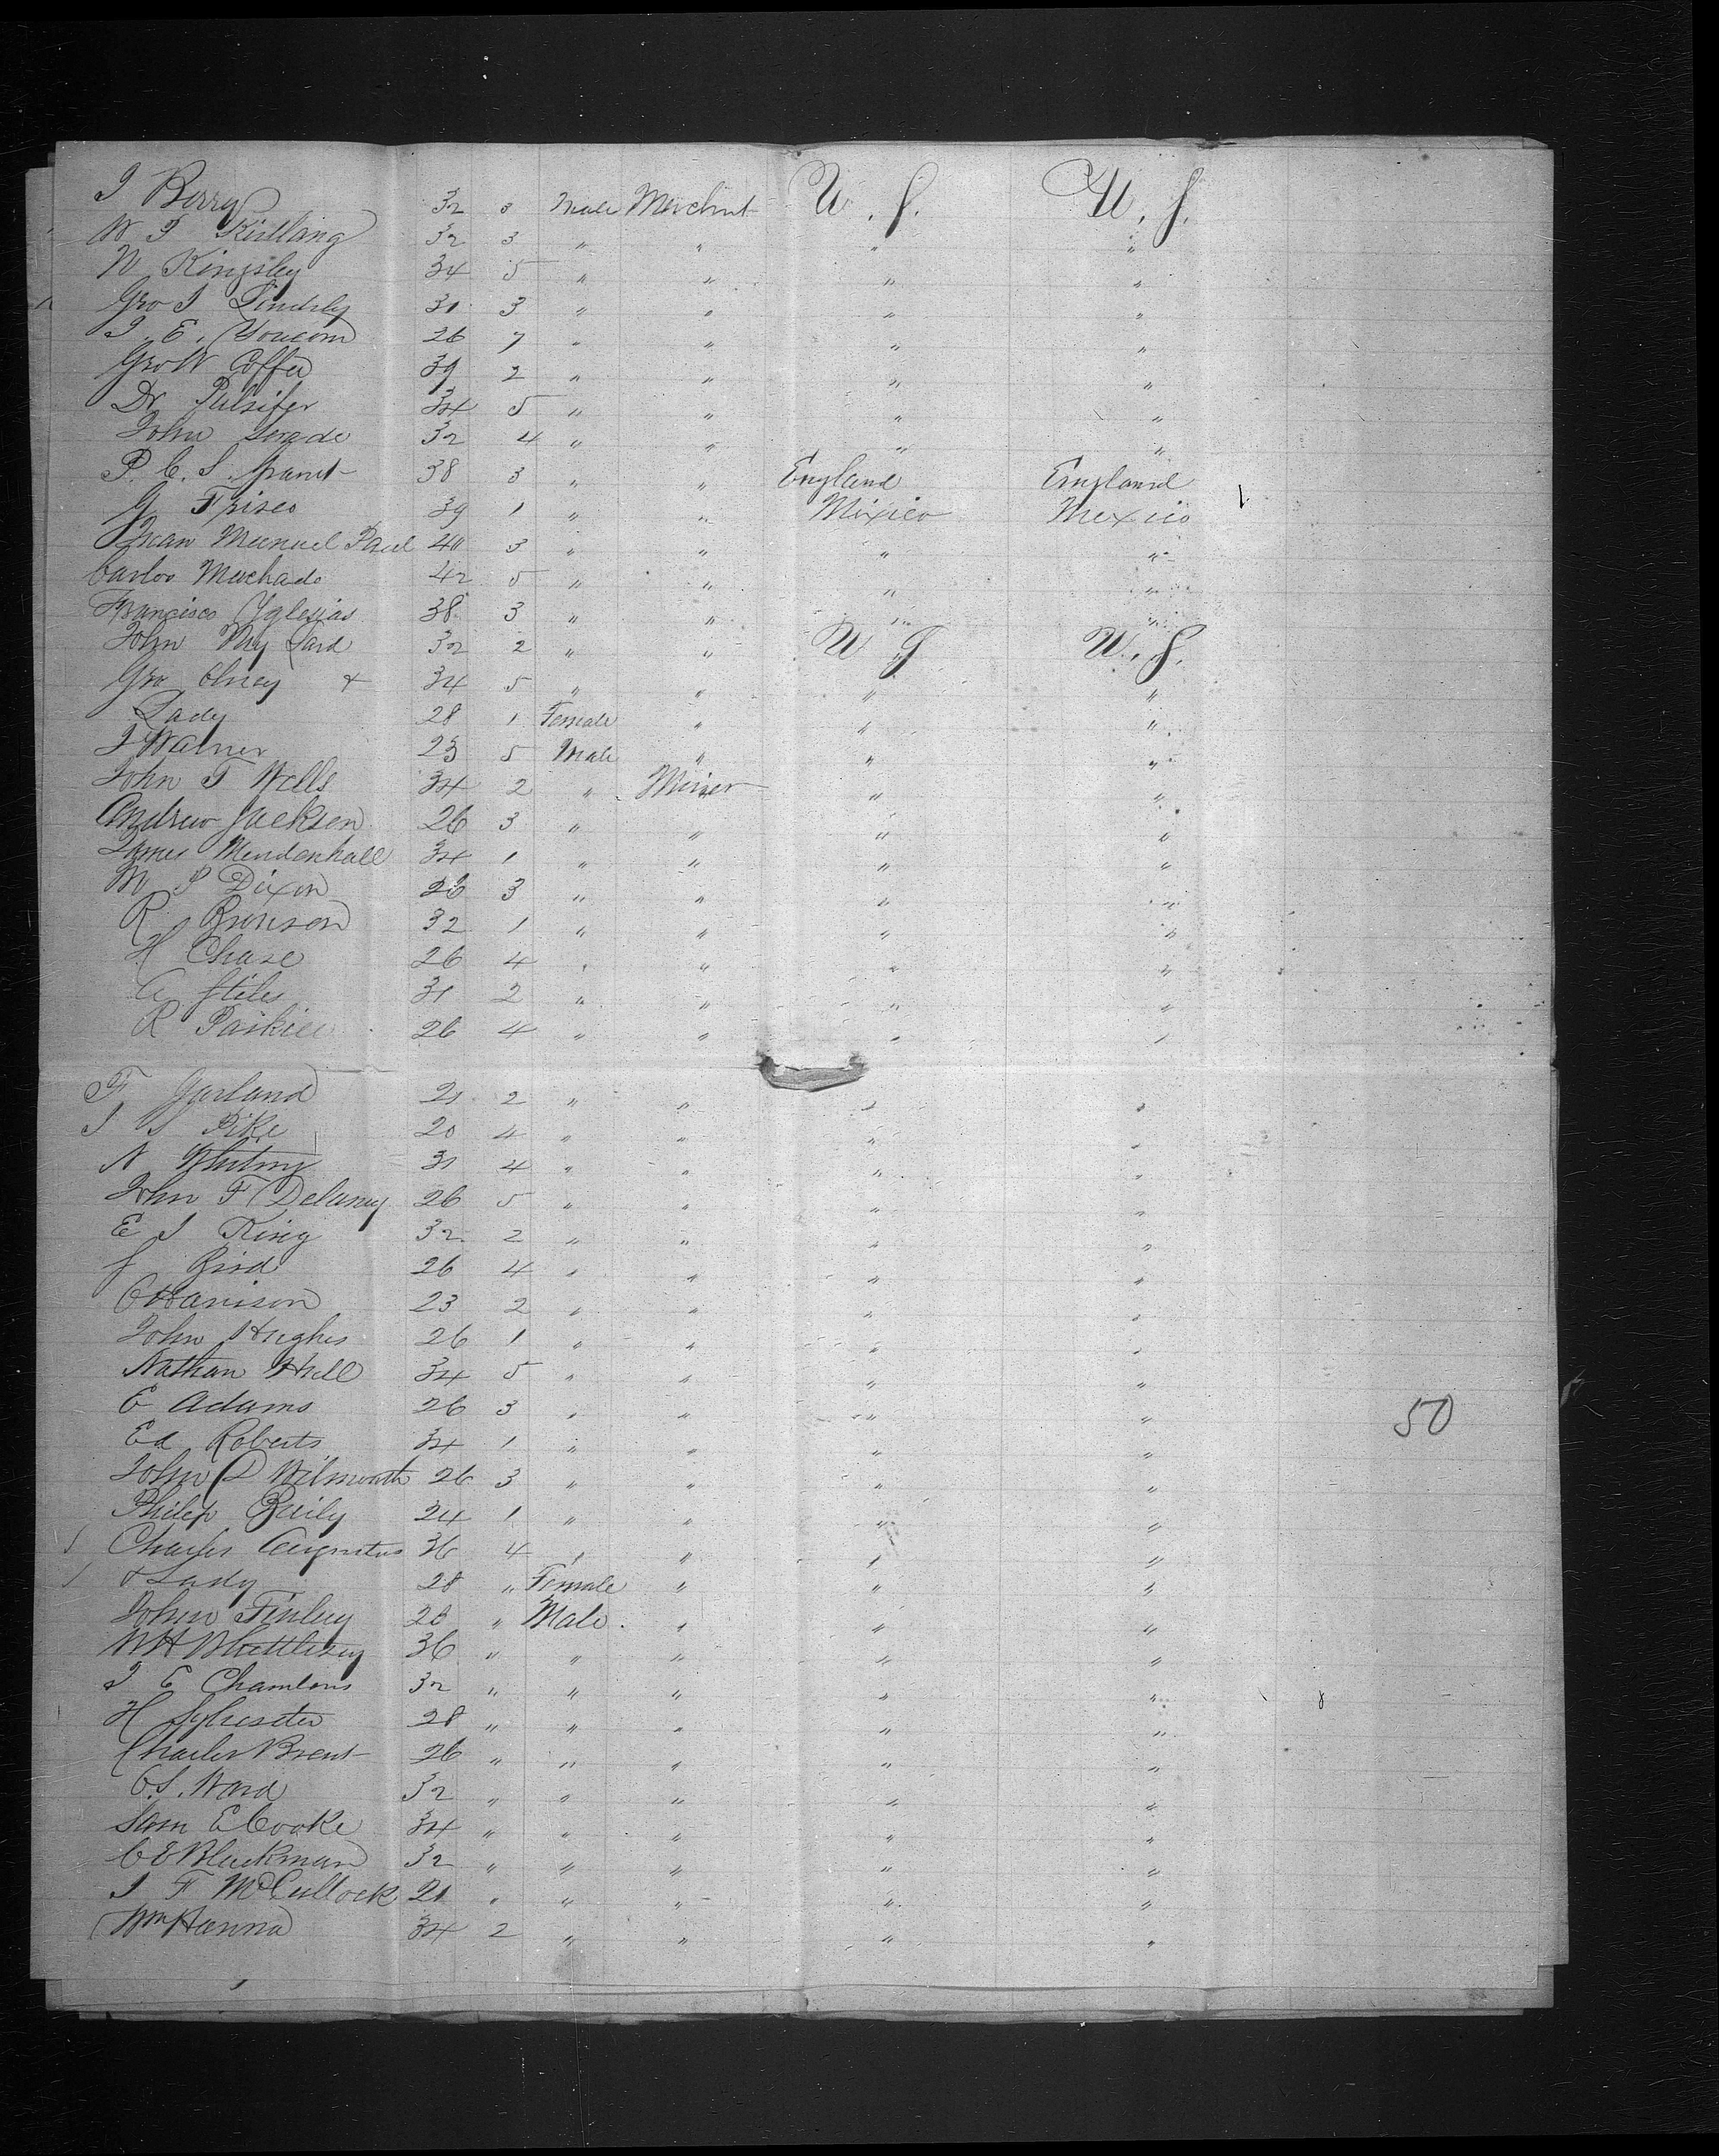 I Berry 32 8 Male Merchnt U.S. U.S.
W I Kullang 32 3 " " " "
W Kingsley 34 5 " " " "
Geo I Lindsly 31 3 " " " "
I. E. Youcom 26 7 " " " "
Geo W Coffee 39 2 " " " "
Dr Pulsifer 34 5 " " " "
John Serade 32 4 " " " "
P. C. S. Grant 38 3 " " England England
G Frisco 39 1 " " Mexico Mexico
Juan Manuel Paul 40 3 " " " "
Carlos Machado 42 5 " " " "
Francisco Yglesias 38 3 " " " "
John My Lard 32 2 " " U S U.S.
Geo Olney & 34 5 " " " "
Lady 28 1 Female " " "
I Walner 23 5 Male " " "
John T Wells 34 2 " Miner " "
Andrew Jackson 26 3 " " " "
James Mendenhall 34 1 " " " "
W S Dixon 26 3 " " " "
R Bronson 32 1 " " " "
H Chase 26 4 " " " "
C Stiles 31 2 " " " "
R Paikiee 26 4 " " " "
F Garland 21 2 " " " "
I S Pike 20 4 " " " "
N Whitny 31 4 " " " "
John F Delaney 26 5 " " " "
E I King 32 2 " " " "
J Bird 26 4 " " " "
C Harrison 23 2 " " " "
John Hughes 26 1 " " " "
Nathan Hull 34 5 " " " "
E Adams 26 3 " " " " 50
Ed Roberts 34 1 " " " "
John D Wilmouth 26 3 " " " "
Philip Baily 24 1 " " " "
Charles Augustus 36 4 " " " "
& Lady 28 " Female " " "
John Finley 28 " Male " " "
W H Whittlesey 36 " " " " "
I E Chambers 32 " " " " "
H Sylvester 28 " " " " "
Charles Brent 26 " " " " "
C. S. Ward 32 " " " " "
Sam E Cooke 34 " " " " "
C E Blackman 32 " " " " "
I F McCullock 21 " " " " "
Wm Hanna 34 2 " " " "